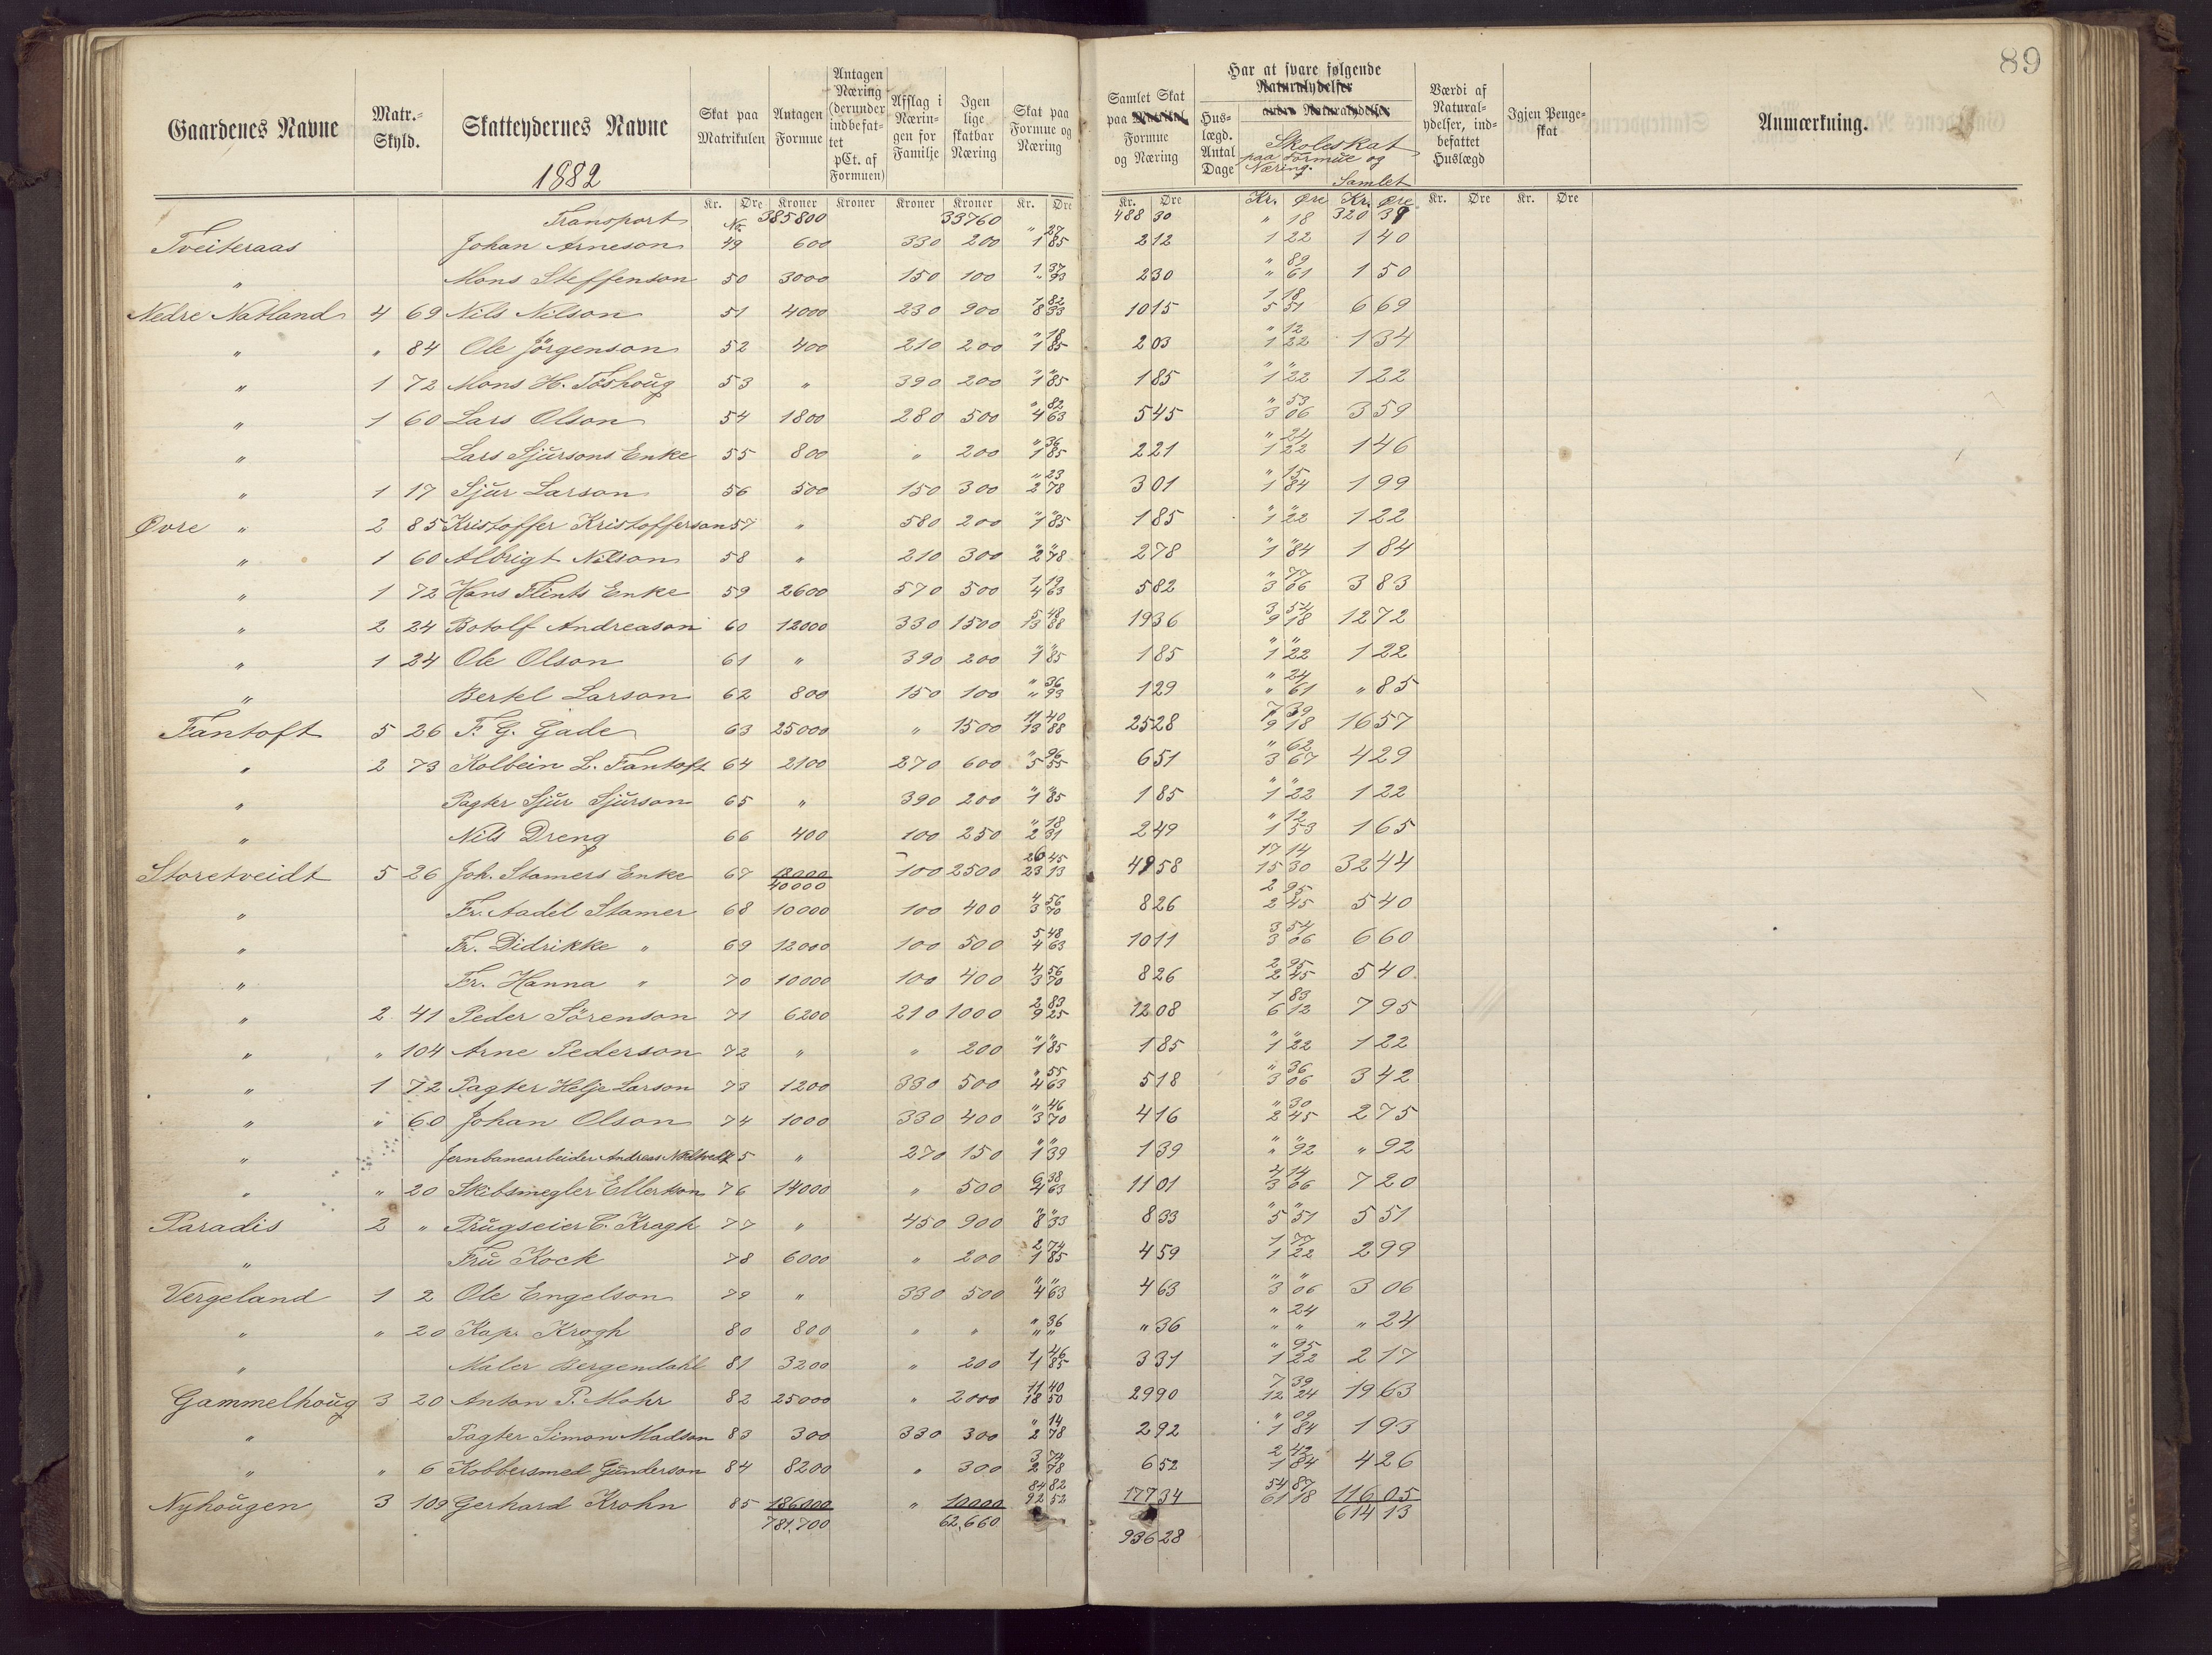 89
Gaardenes Navne Matr.-Skyld. Skatteydernes Navne Skat paa Matrikulen Antagen Formue Antagen Næring (derunder indbefattet pCt. af Formuen) Afslag i Næringen for Familje Igen lige skatbar Næring Skat paa Formue og Næring Samlet Skat paa Matrikul Formue og Næring Huslægd. Antal Dage Har at svare følgende Naturalydelser Skoleskat paa Formue og Næring. Samlet Værdi af Naturalydelser, indbefattet Huslægd Igjen Pengeskat Anmærkning.
1882
Kr. Øre Kroner Kroner Kroner Kroner Kr. Øre Kr. Øre Kr. Øre Kr. Øre Kr. Øre Kr. Øre
Transport No. 385800 33760 488 30 320 39
Tveiteraas Johan Arneson 49 600 330 200 " 27 1 85 2 12 " 18 1 22 1 40
" Mons Steffenson 50 3000 150 100 1 37 " 93 2 30 " 89 " 61 1 50
Nedre Natland 4 69 Nils Nilson 51 4000 230 900 1 82 8 33 10 15 1 18 5 51 6 69
" " 84 Ole Jörgenson 52 400 210 200 " 18 1 85 2 03 " 12 1 22 1 34
" 1 72 Mons H. Toshoug 53 " 390 200 " " 1 85 1 85 " " 1 22 1 22
" 1 60 Lars Olson 54 1800 280 500 " 82 4 63 5 45 " 53 3 06 3 59
" Lars Sjursons Enke 55 800 " 200 " 36 1 85 2 21 " 24 1 22 1 46
" 1 17 Sjur Larson 56 500 150 300 " 23 2 78 3 01 " 15 1 84 1 99
Øvre " 2 85 Kristoffer Kristofferson 57 " 580 200 " " 1 85 1 85 " " 1 22 1 22
" 1 60 Albrigt Nilson 58 " 210 300 " " 2 78 2 78 " " 1 84 1 84
" 1 72 Hans Flints Enke 59 2600 570 500 1 19 4 63 5 82 " 77 3 06 3 83
" 2 24 Botolf Andreason 60 12000 330 1500 5 48 13 88 19 36 3 54 9 18 12 72
" 1 24 Ole Olson 61 " 390 200 " " 1 85 1 85 " " 1 22 1 22
" Bertel Larson 62 800 150 100 " 36 " 93 1 29 " 24 " 61 " 85
Fantoft 5 26 F. G. Gade 63 25000 " 1500 11 40 13 88 25 28 7 39 9 18 16 57
" 2 73 Kolbein L. Fantoft 64 2100 270 600 " 96 5 55 6 51 " 62 3 67 4 29
" Pagter Sjur Sjurson 65 " 390 200 " " 1 85 1 85 " " 1 22 1 22
" Nils Dreng 66 400 100 250 " 18 2 31 2 49 " 12 1 53 1 65
Storetveidt 5 26 Joh. Stamers Enke 67 18000 40000 100 2500 26 45 23 13 49 58 17 14 15 30 32 44
" Fr. Aadel Stamer 68 10000 100 400 4 56 3 70 8 26 2 95 2 45 5 40
" Fr. Didrikke " 69 12000 100 500 5 48 4 63 10 11 3 54 3 06 6 60
" Fr. Hanna " 70 10000 100 400 4 56 3 70 8 26 2 95 2 45 5 40
" 2 41 Peder Sörenson 71 6200 210 1000 2 83 9 25 12 08 1 83 6 12 7 95
" " 104 Arne Pederson 72 " " 200 " " 1 85 1 85 " " 1 22 1 22
" 1 72 Pagter Helje Larson 73 1200 330 500 " 55 4 63 5 18 " 36 3 06 3 42
" " 60 Johan Olson 74 1000 330 400 " 46 3 70 4 16 " 30 2 45 2 75
" Jernbanearbeider Andreas 75 " 270 150 " " 1 39 1 39 " " " 92 " 92
" " 20 Skibsmegler Ellerson 76 14000 " 500 6 38 4 63 11 01 4 14 3 06 7 20
Paradis 2 " Brugseier C. Kragh 77 " 450 900 " " 8 33 8 33 " " 5 51 5 51
" Fru Kock 78 6000 " 200 2 74 1 85 4 59 1 77 1 22 2 99
Vergeland 1 2 Ole Engelson 79 " 330 500 " " 4 63 4 63 " " 3 06 3 06
" " 20 Kap. Krogh 80 800 " " " 36 " " " 36 " 24 " " " 24
" Maler Bergendahl 81 3200 " 200 1 46 1 85 3 31 " 95 1 22 2 17
Gammelhoug 3 20 Anton P. Mohr 82 25000 " 2000 11 40 18 50 29 90 7 39 12 24 19 63
" Pagter Simon Madson 83 300 330 300 " 14 2 78 2 92 " 09 1 84 1 93
" " 6 Kobbersmed Gunderson 84 8200 " 300 3 74 2 78 6 52 2 42 1 84 4 26
Nyhougen 3 109 Gerhard Krohn 85 186000 " 10000 84 82 92 52 177 34 54 87 61 18 116 05
781,700 62,660 936 28 614 13